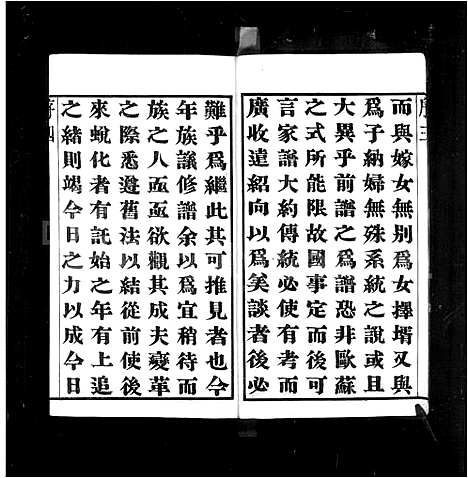 序三
而與嫁女無別爲女擇壻又與
爲子納婦無殊系統之說或且
大異乎前譜之譜恐非歐蘇
之式所能限故國事定而後可
言家譜大約傳統必使有考而
廣收遠紹向以爲笑談者後必
難乎爲繼此其可推見者也今
年族議修譜余以爲宜稍待而
族之人亟亟欲觀其成夫變革
之際悉遵舊法以結從前使後
來蛻化者有託始之年有上追
之緒則竭今日之力以成今日
序四